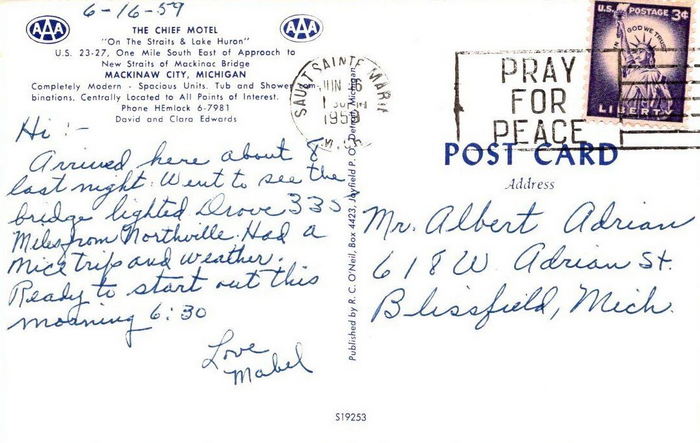 6-16-59
AAA
AAA
THE CHIEF MOTEL
"On The Straits & Lake Huron"
U.S. 23-27, One Mile South East of Approach to
New Straits of Mackinac Bridge
MACKINAW CITY, MICHIGAN
Completely Modern - Spacious Units. Tub and Shower Com-
binations. Centrally Located to All Points of Interest.
Phone HEmlock 6-7981
David and Clara Edwards
Hi :-
Arrived here about 8
last night. Went to see the
bridge lighted Drove 335
Miles from Northville. Had a
nice trip and weather.
Ready to start out this
morning 6:30
Love
Mabel
Published by R. C. O'Neil, Box 4423, Jayfield P. O., Detroit, Michigan
SAULT SAINTE MARIE
JUN 16
1959
PRAY
FOR
PEACE
U.S. POSTAGE 3¢
IN GOD WE TRUST
LIBERTY
POST CARD
Address
Mr. Albert Adrian
618 W. Adrian St.
Blissfield, Mich.
S19253